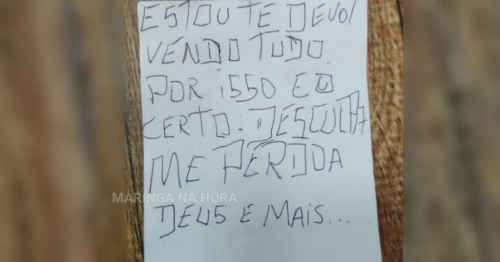 ESTOU TE DEVOL
VENDO TUDO.
POR iSSO E O
CERTO. DESCULPA
ME PERDOA
MARINGÁ NA HORA
DEUS E MAIS...